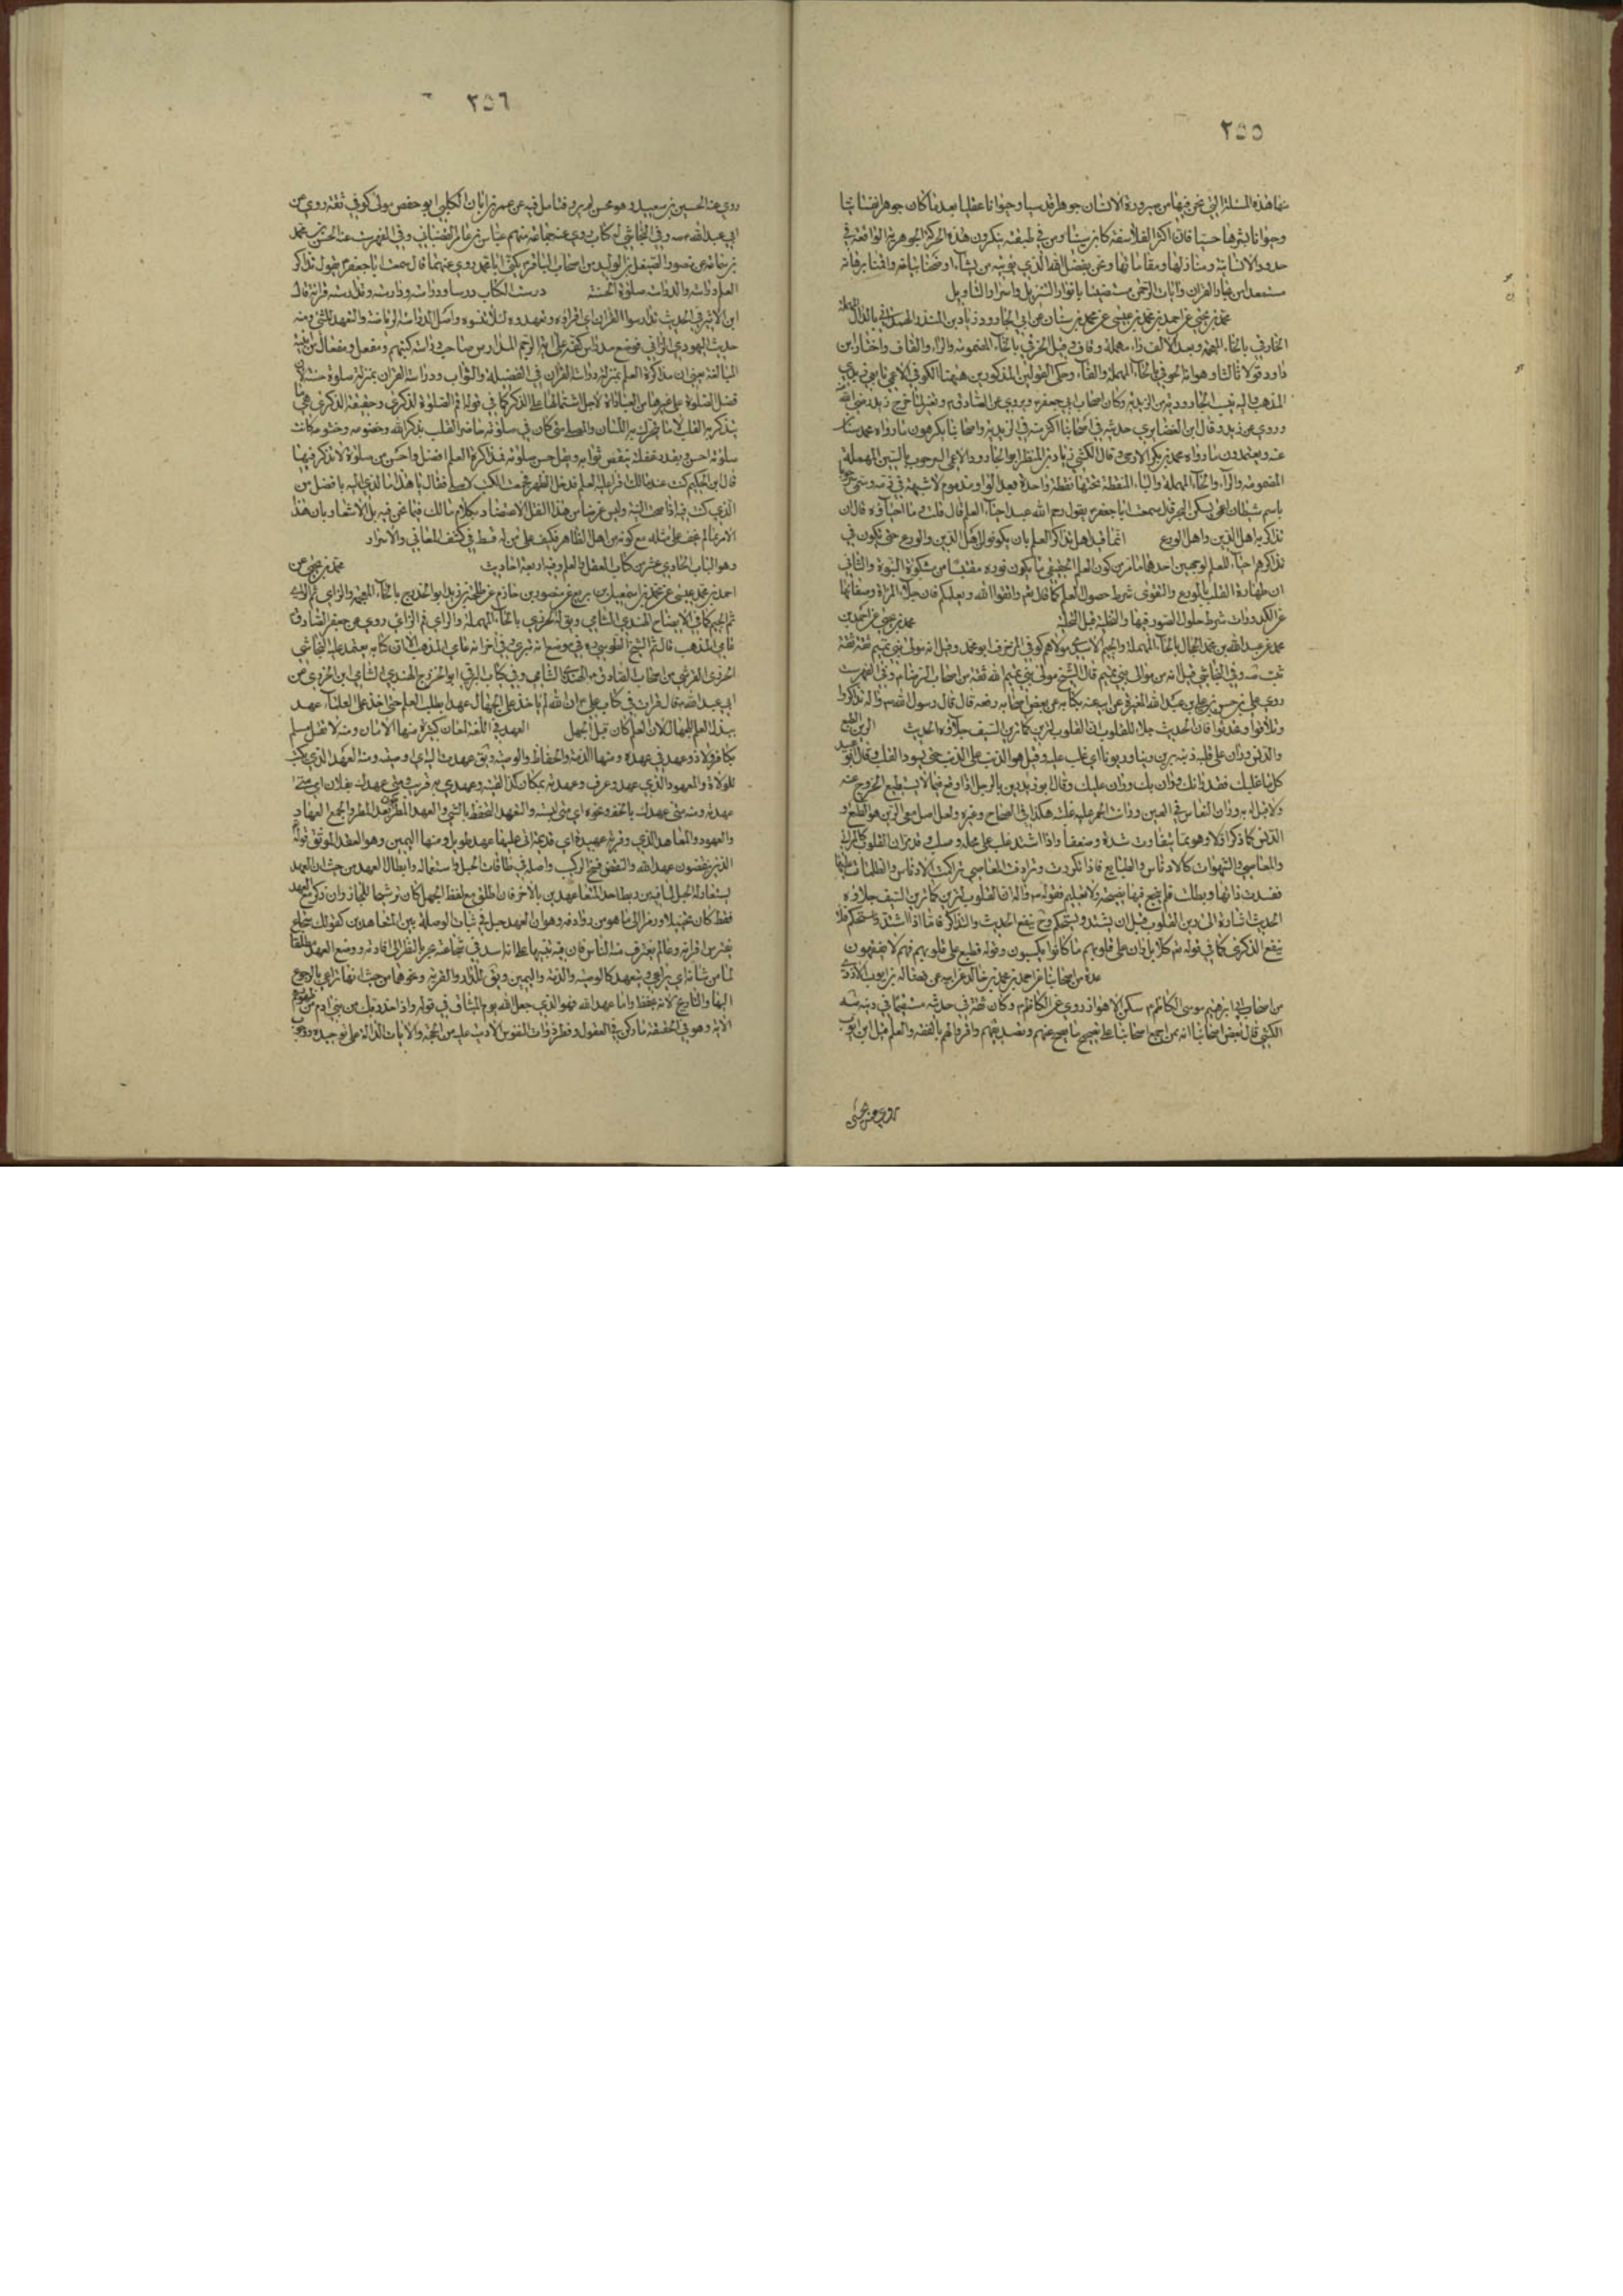 ٢٥٥
منها هذه المسئلة التي نحن فيها من صيرورة الانسان جوهرا قدسيا وحيوانا عقليا بعد ما كان جوهرا نفسانيا
وحيوانا بشرها حسيا فان اكثر الفلاسفة كابن سينا ومن في طبقته ينكرون هذه الحركة الجوهرية الواقعة في
حدود الانسانية ومنازلها ومقاماتها ونحن بفضل الله الذي يؤتيه من يشاء
مستمدا من بحار القران وايات الرحمن مستضيئا بانوار التنزيل واسرار التاويل
محمد بن يحيى عن احمد بن محمد بن عيسى عن محمد بن سنان عن ابي الجارود زياد بن المنذر الهمداني بالدال المهملة
الخارفي بالخاء المعجمة وبعد الالف راء مهملة وفاء وقيل الخرقي بالخاء المضمومة والراء والقاف واختار ابن
داود قولا ثالثا وهو انه الحوفي بالحاء المهملة والفاء وحكى القولين المذكورين هيهنا الكوفي الاعمى تابعي زيدي
المذهب واليه ينسب الجارودية من الزيدية وكان من اصحاب ابي جعفر ع وروى عن الصادق ع وتغير لما خرج زيد رضي الله
وروى عن زيد وقال ابن الغضايري حديثه في اصحابنا اكثر منه في الزيدية واصحابنا يكرهون ما رواه محمد بن سنان
عنه ويعتمدون ما رواه محمد بن بكر الارجنى وقال الكشي زياد بن المنذر ابو الجارود الاعمى السرحوب بالسين المهملة
المضمومة والراء والحاء المهملة والباء المنقطة تحتها نقطة واحدة بعد الواو مذموم لا شبهة في ذمه وسمي سرحوبا
باسم شيطان اعمى يسكن البحر قال سمعت ابا جعفر ع يقول رحم الله عبدا احيا العلم قال قلت وما احياؤه قال ان
تذاكر به اهل الدين واهل الورع انما قيد اهل تذاكر العلم بان يكونوا من اهل الدين والورع حتى يكون في
تذاكرهم احياء للعلم لوجهين احدهما ما مر من كون العلم الحقيقي ما يكون نوره مقتبسا من مشكوة النبوة والثاني
ان طهارة القلب بالورع والتقوى شرط حصول العلم كما قال تعالى واتقوا الله ويعلمكم فان جلاء المراة وصفائها
عن الكدورات شرط حلول الصور فيها والتخلية قبل التحلية محمد بن يحيى عن احمد بن
محمد عن عبد الله بن محمد الحجال بالحاء المهملة والجيم الاسدي مولاهم كوفي المزخرف ابو محمد وقيل انه مولى بني تميم ثقة ثقة
ثبت صه وفي النجاشي قيل انه من موالي بني تميم قال الشيخ مولى بني تيم الله ثقة من اصحاب الرضا ع وفي الفهرست
روى علي بن حسن بن علي بن عبد الله المغيرة عن ابيه عنه بكتابه عن بعض اصحابه رفعه قال قال رسول الله ص تذاكروا
وتلاقوا وتحدثوا فان الحديث جلاء للقلوب ان القلوب لترين كما يرين السيف جلاؤه الحديث الرين الطبع
والدنس وران على قلبه ذنبه يرين رينا وريونا اي غلب عليه وقيل هو الذنب على الذنب حتى يسود القلب وقال ابو عبيد
كل ما غلبك فقد رانك وران بك وران عليك وقال ابو زيد رين بالرجل اذا وقع فيما لا يستطيع الخروج عنه
ولا قبل له به وران النعاس في العين ورانت الخمر عليه غلبته هكذا في الصحاح وغيره ولعل اصل معنى الرين هو الطبع و
الدنس كما ذكر اولا وهو مما يتفاوت شدة وضعفا واذا اشتد غلب على محله
والمعاصي والشهوات كالادناس والطبايع فاذا تكررت وترادفت المعاصي تراكمت الادناس والظلمات
فسدت ذاتها وبطلت فلم ينجع فيها نصيحة ولا تعليم فقوله ان القلوب لترين كما يرين السيف جلاؤه
الحديث اشارة الى رين القلوب قبل ان يشتد ويستحكم وح ينفع الحديث والتذاكر فاما اذا اشتد واستحكم فلا
ينفع الذكرى كما في قوله تعالى كلا بل ران على قلوبهم ما كانوا يكسبون وقوله فطبع على قلوبهم فهم لا يفقهون
عدة من اصحابنا عن احمد بن محمد بن خالد عن ابيه عن فضالة بن ايوب الازدي
من اصحاب ابي ابرهيم موسى الكاظم ع سكن الاهواز روى عن الكاظم ع وكان ثقة في حديثه مستقيما في دينه صه
الكشي قال بعض اصحابنا انه ممن اجمع اصحابنا على تصحيح ما يصح عنهم وتصديقهم واقروا لهم بالفقه والعلم
٢٥٦
روى عنه الحسين بن سعيد عن عمر بن ابان الكلبي ابو حفص مولى كوفي ثقة روى عن
ابي عبد الله ع صه وفي النجاشي له كتاب روى عنه جماعة منهم عباس بن عامر القصباني وفي الفهرست عنه الحسن بن محمد
بن سماعة عن منصور الصيقل بن الوليد من اصحاب الباقر ع يكنى ابا محمد روى عنهما قال سمعت ابا جعفر ع يقول تذاكر
العلم دراسة والدراسة صلوة حسنة درست الكتاب درسا ودراسة وتدارسته قراته قال
ابن الاثير في الحديث تدارسوا القران اي اقراؤه وتعهدوه لئلا تنسوه واصل الدراسة الرياضة والتعهد للشيء ومنه
حديث اليهودي الزاني فوضع مدراسها كفه على اية الرجم المدارس صاحب دراسة كتبهم ومفعل ومفعال من ابنية
المبالغة يعني ان مذاكرة العلم بمنزلة دراسة القران في الفضيلة والثواب ودراسة القران بمنزلة صلوة حسنة
فضل الصلوة على غيرها من العبادات لاجل اشتمالها على الذكر كما في قوله اقم الصلوة لذكري وحقيقة الذكرى هي ما
يتذكر به القلب لا ما يتحرك به اللسان والمصلي متى كان في صلوته حاضر القلب بذكر الله وخضوعه وخشوعه كانت
صلوته احسن وبقدر غفلته ينقص ثوابه ويقل حسن صلوته فمذاكرة العلم افضل واحسن من صلوة لا تذكر فيها
قال ابن الحكيم كنت عند مالك اقرا عليه العلم فدخل الظهر فجمعت الكتب لاصلي فقال يا هذا ما الذي قمت اليه بافضل من
الذي كنت فيه اذا صحت النية وليس غرضنا من هذا النقل الاعتضاد بكلام مالك فيما نحن فيه بل الاشعار بان هذا
الامر مما لم يخف على مثله مع كونه من اهل الظاهر فكيف على من له قسط في كشف المعاني والاسرار
وهو الباب الحادي عشر من كتاب العقل والعلم وفيه اربعة احاديث محمد بن يحيى عن
احمد بن محمد بن عيسى عن محمد بن اسمعيل بن بزيع عن منصور بن حازم عن طلحة بن زيد ابو الخزرج بالخاء المعجمة والزاي ثم الراء
ثم الجيم كما في الايضاح النهدي الشامي ويق له الخزري بالخاء المهملة والزاي ثم الراي روى عن جعفر الصادق ع
عامي المذهب قال الشيخ الطوسي ره في موضع انه بتري وفي اخر انه عامي المذهب الا ان كتابه معتمد عليه النجاشي
الخزري القرشي من اصحاب الصادق ع النهدي الشامي وفي كتاب البرقي ابو الخزرج النهدي الشامي
ابي عبد الله ع قال قرات في كتاب علي ع ان الله لم ياخذ على الجهال عهدا بطلب العلم حتى اخذ على العلماء عهدا
ببذل العلم للجهال لان العلم كان قبل الجهل العهد في اللغة لمعان كثيرة منها الامان ومنه لا يقتل مسلم
بكافر ولا ذو عهد في عهده ومنها الذمة والحفاظ والوصية ويق عهدت اليه اي وصيته ومنه العهد الذي يكتب
للولاة والمعهود الذي عهد وعرف وعهدته بمكان كذا لقيته وعهدي به قريب ومتى عهدك بفلان اي متى
والعهود والمعاهد الذي وقرية عهيدة اي قديمة اتى عليها عهد طويل ومنها اليمين وهو العقد الموثق
الذين ينقضون عهد الله والنقض فسخ التركيب واصله في طاقات الحبل واستعماله في ابطال العهد من حيث ان العهد
يستعار له الحبل لما فيه من ربط احد المتعاهدين بالاخر فان اطلق مع لفظ الحبل كان ترشيحا للمجاز وان ذكر مع العهد
فقط كان تخييلا ورمزا الى ما هو من روادفه وهو ان العهد حبل في ثبات الوصلة بين المتعاهدين كقولك شجاع
يفترس اقرانه وعالم يغترف منه الناس فان فيه تنبيها على انه اسد في شجاعته بحر بالنظر الى افادته ووضع العهد
لما من شانه ان يراعى ويتعهد كالوصية والذمة واليمين ويق للدار والقرية ونحوها من حيث انها تراعى بالرجوع
اليها والتاريخ لانه يحفظ واما عهد الله فهو الذي جعل الله يوم الميثاق في قوله واذ اخذ ربك من بني ادم من ظهورهم
الاية وهو في الحقيقة ما ركز في العقول